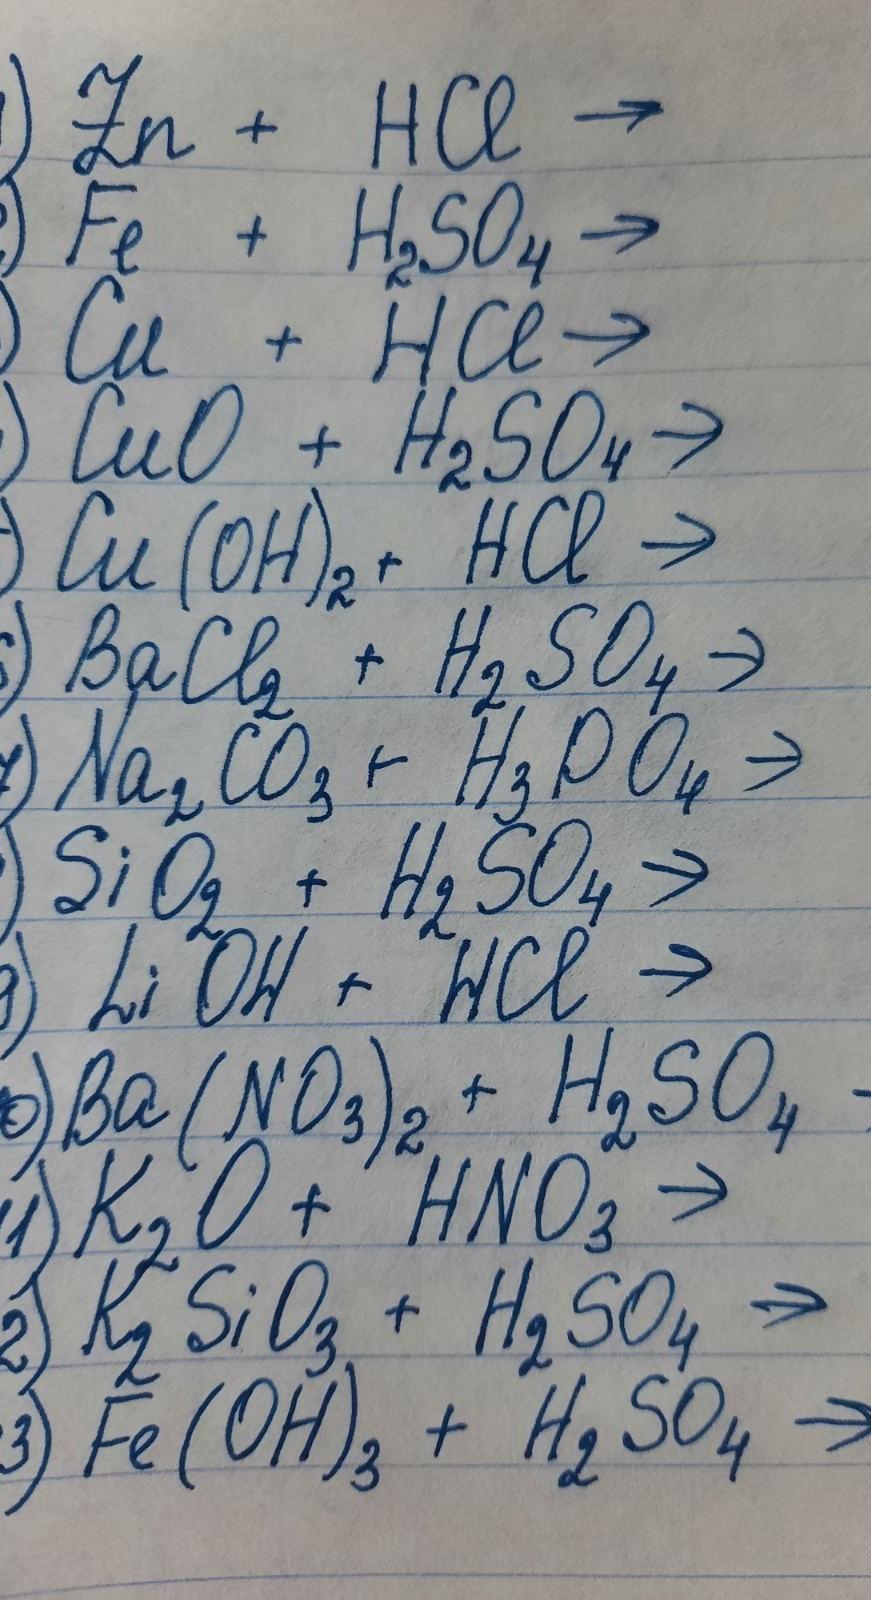 1) Zn + HCl →
2) Fe + H₂SO₄ →
) Cu + HCl →
) CuO + H₂SO₄ →
) Cu(OH)₂ + HCl →
6) BaCl₂ + H₂SO₄ →
7) Na₂CO₃ + H₃PO₄ →
) SiO₂ + H₂SO₄ →
9) LiOH + HCl →
0) Ba(NO₃)₂ + H₂SO₄ -
11) K₂O + HNO₃ →
2) K₂SiO₃ + H₂SO₄ →
3) Fe(OH)₃ + H₂SO₄ →